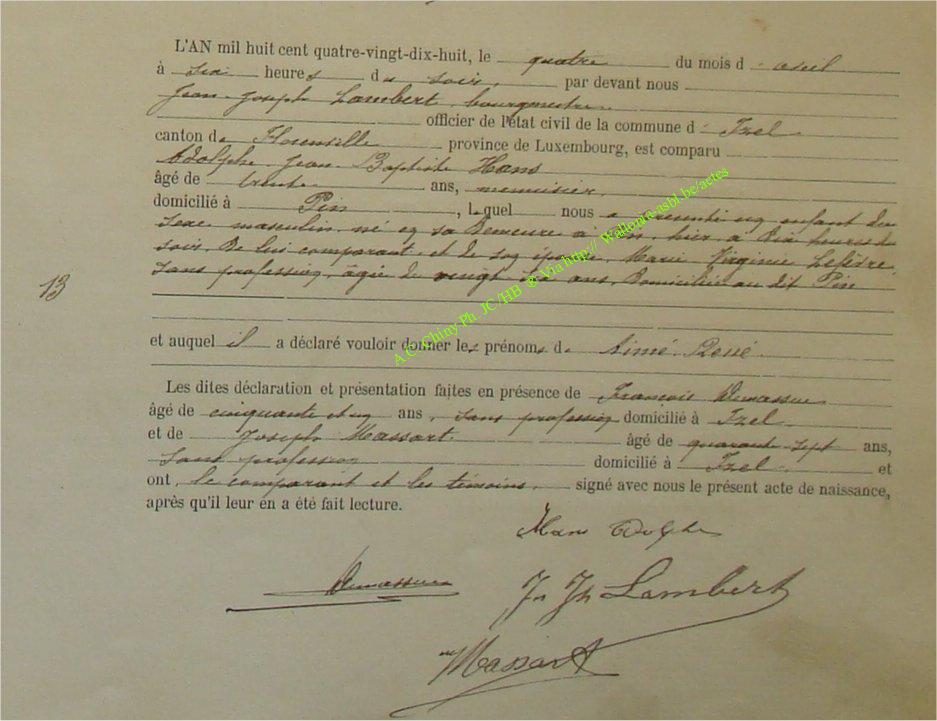 L'AN mil huit cent quatre-vingt-dix-huit, le quatre du mois d'avril
à six heures du soir, par devant nous
Jean Joseph Lambert, bourgmestre
officier de l'état civil de la commune d'Izel
canton de Florenville province de Luxembourg, est comparu
Adolphe Jean Baptiste Hans
âgé de trente ans, menuisier
domicilié à Pin, lequel nous a présenté un enfant du
sexe masculin, né en sa demeure à Pin, hier, à dix heures du
soir, de lui comparant, et de son épouse, Marie Virginie Lefèvre,
sans profession, âgée de vingt six ans, domiciliée au dit Pin
13
et auquel il a déclaré vouloir donner les prénoms de Aimé René.
Les dites déclaration et présentation faites en présence de François Demasure
âgé de cinquante et un ans, sans profession domicilié à Izel
et de Joseph Massart. âgé de quarante sept ans,
sans profession domicilié à Izel et
ont, le comparant et les témoins, signé avec nous le présent acte de naissance,
après qu'il leur en a été fait lecture.
Hans Adolphe
Demasure
Jn Jh Lambert
Massart
A.C. Chiny Ph. JC/HB @ Via http:// Wallonia-asbl.be/actes